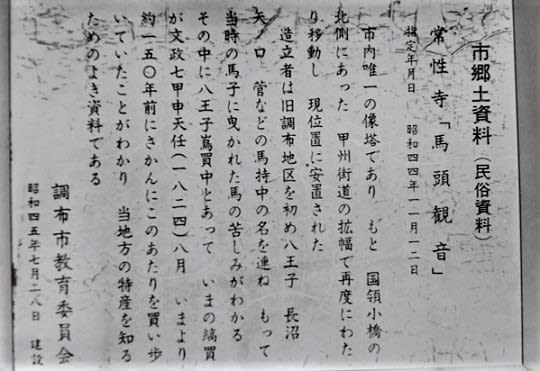 市郷土資料(民俗資料)
常性寺「馬頭観音」
指定年月日 昭和四四年一一月一二日
市内唯一の像塔であり もと 国領小橋の
北側にあった 甲州街道の拡幅で再度にわた
り移動し 現位置に安置された
造立者は旧調布地区を初め八王子 長沼
矢ノ口 管などの馬持中の名を連ね もって
当時の馬子に曳かれた馬の苦しみがわかる
その中に八王子嶌買中とあって いまの縞買
が文政七甲申天任(一八二四)八月 いまより
約一五〇年前にさかんにこのあたりを買い歩
いていたことがわかり 当地方の特産を知る
ためのよき資料である
調布市教育委員会
昭和四五年七月二八日 建設